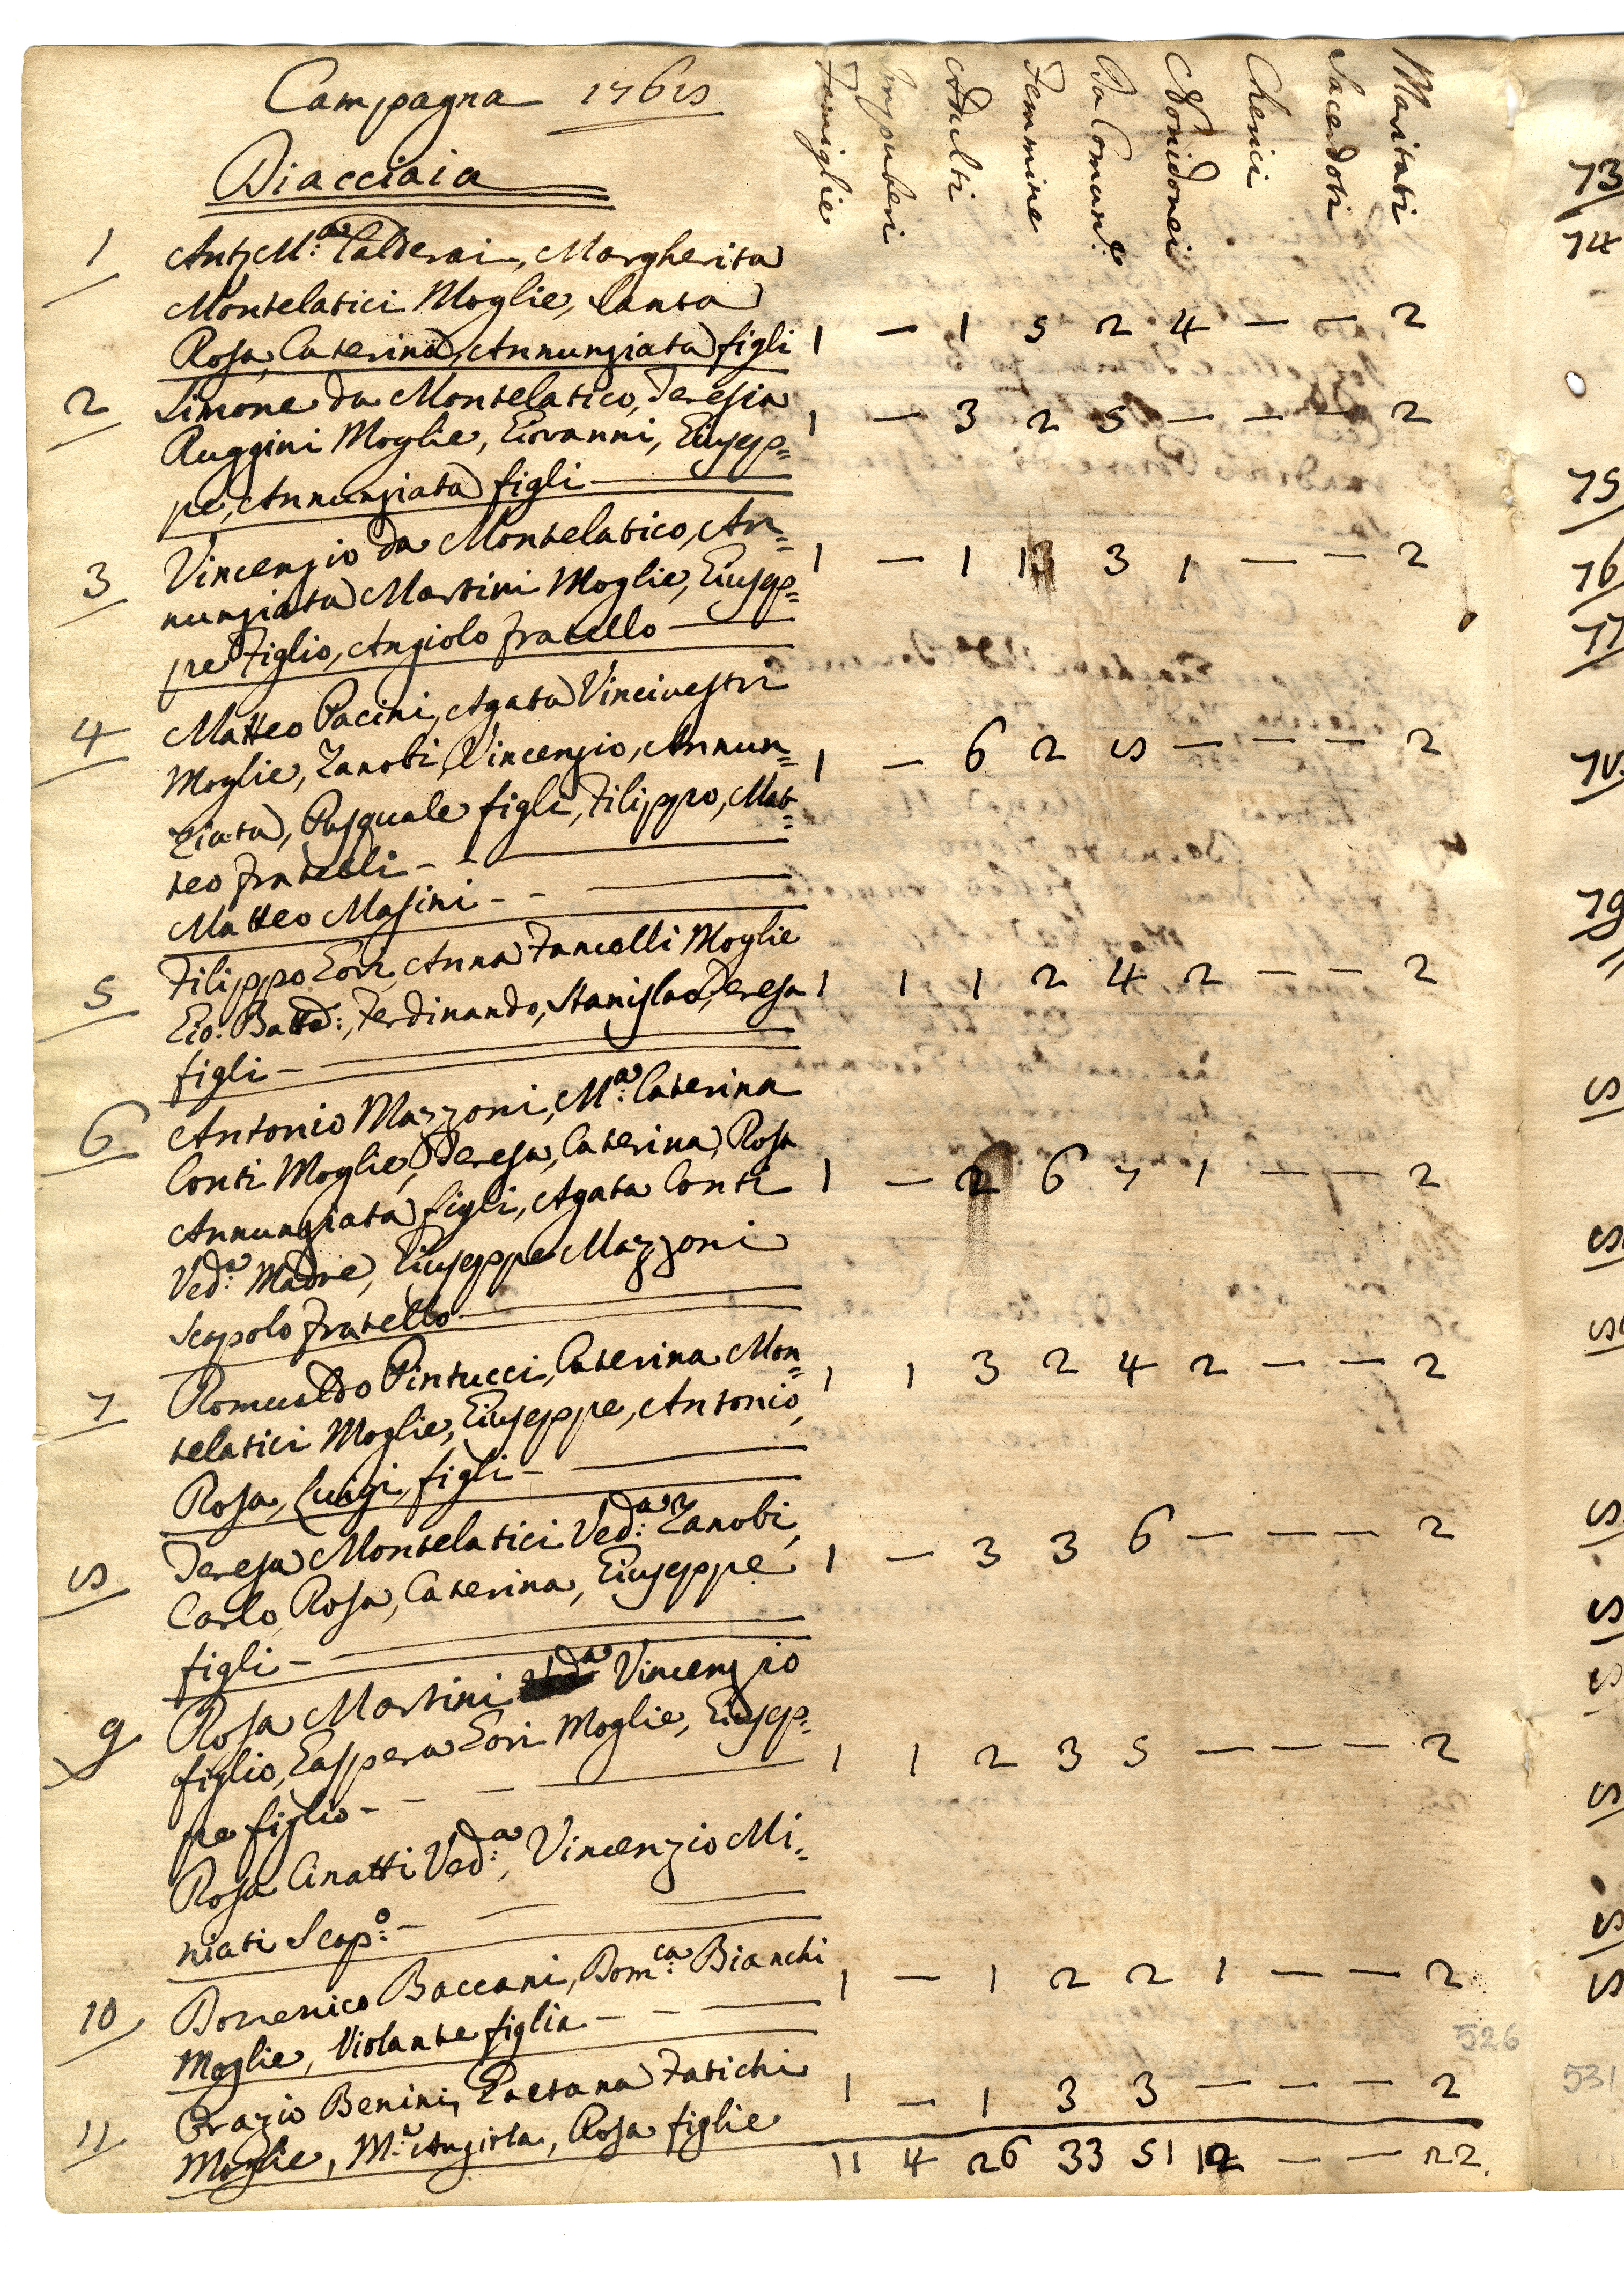 Campagna 1768
Diacciaia
Famiglie Impuberi Adulti Femmine Da Comun.e Nonidonei Cherici Sacerdoti Maritati
1 Ant. M.a Calderai, Margherita
Montelatici Moglie, Santa
Rosa, Caterina, Annunziata figli 1 — 1 5 2 4 — — 2
2 Simone da Montelatico, Teresia
Ruggini Moglie, Giovanni, Giusep= 1 — 3 2 5 — — — 2
pe, Annunziata figli —
3 Vincenzio da Montelatico, An= 1 — 1 3 3 1 — — 2
nunziata Martini Moglie, Giusep=
pe Figlio, Angiolo fratello —
4 Matteo Pacini, Agata Vincivestri
Moglie, Zanobi, Vincenzio, Annun= 1 — 6 2 8 — — — 2
ziata, Pasquale figli, Filippo, Mat=
teo fratelli — —
Matteo Masini — — —
5 Filippo Gori, Anna Fancelli Moglie
Gio: Batt.a: Ferdinando, Stanislao, Teresa 1 1 1 2 4 2 — — 2
figli —
6 Antonio Mazzoni, M.a Caterina
Conti Moglie, Teresa, Caterina, Rosa
Annunziata figli, Agata Conti 1 — 2 6 7 1 — — 2
Ved.a Madre, Giuseppe Mazzoni
Scapolo fratello —
7 Romualdo Pintucci, Caterina Mon= 1 1 3 2 4 2 — — 2
telatici Moglie, Giuseppe, Antonio,
Rosa, Luigi, figli — —
8 Teresa Montelatici Ved.a Zanobi,
Carlo, Rosa, Caterina, Giuseppe 1 — 3 3 6 — — — 2
figli —
9 Rosa Martini Vincenzio
figlio, Gaspera Gori Moglie, Giusep=
pe figlio — — — 1 1 2 3 5 — — — 2
Rosa Cinatti Ved.a, Vincenzio Mi=
niati Scap.o — — —
10 Domenico Baccani, Dom.ca Bianchi
Moglie, Violante figlia — — — 1 — 1 2 2 1 — — 2
11 Orazio Benini, Gaetana Fatichi
Moglie, M.a Angiola, Rosa figlie 1 — 1 3 3 — — — 2
11 4 26 33 51 12 — — 22.
526
73
74
75
76
77
78
79
8
8
8
8
8
8
8
8
8
531